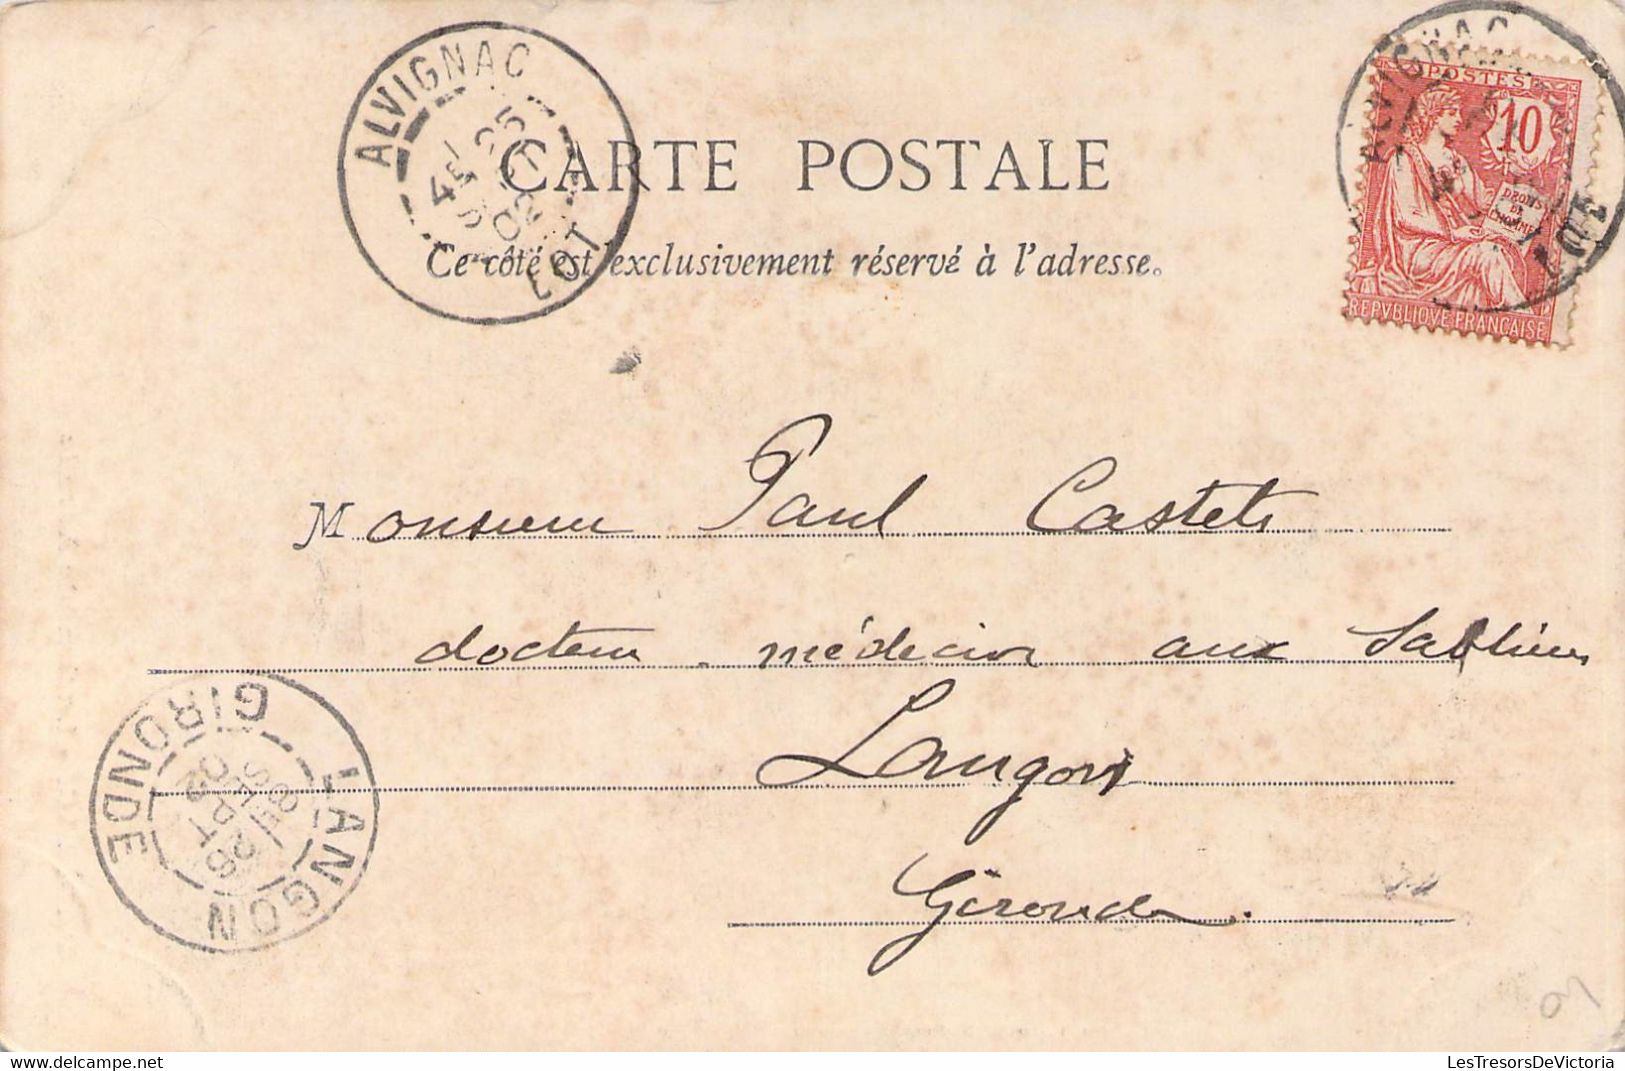 ALVIGNAC
4E
25
SEPT
02
LOT
CARTE POSTALE
Ce côté est exclusivement réservé à l'adresse.
ALVIGNAC
LOT
POSTES
10
DROITS
DE
L'HOMME
REPVBLIQVE FRANÇAISE
Monsieur Paul Castets
docteur médecin aux Sablières
Langon
Gironde.
LANGON
8E
26
SEPT
02
GIRONDE
LesTresorsDeVictoria